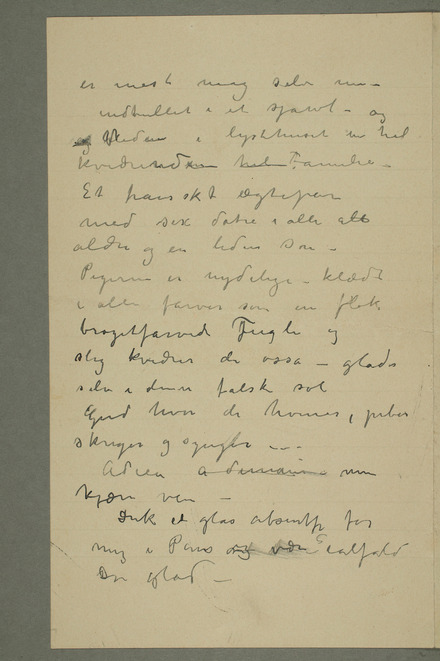 er mest meg selv nu –
indhullet i et sjawl – og
og Neden i lysthuset en hel
kvidrende hel Familie –
Et franskt ægtepar
med sex døtre i alle alt
aldre og en liden søn –
Pigerne er nydelige – klædt
i alle farver som en flok
brogetfarved Fugle og
slig kvidrer de ossa – glade
selv i denne falske sol
Gud hvor de hvines, piber
skriger og synger – –
Adieu a demain min
kjære ven –
Drik et glas absinth for
mig i Paris og vær ialfald
De glad –